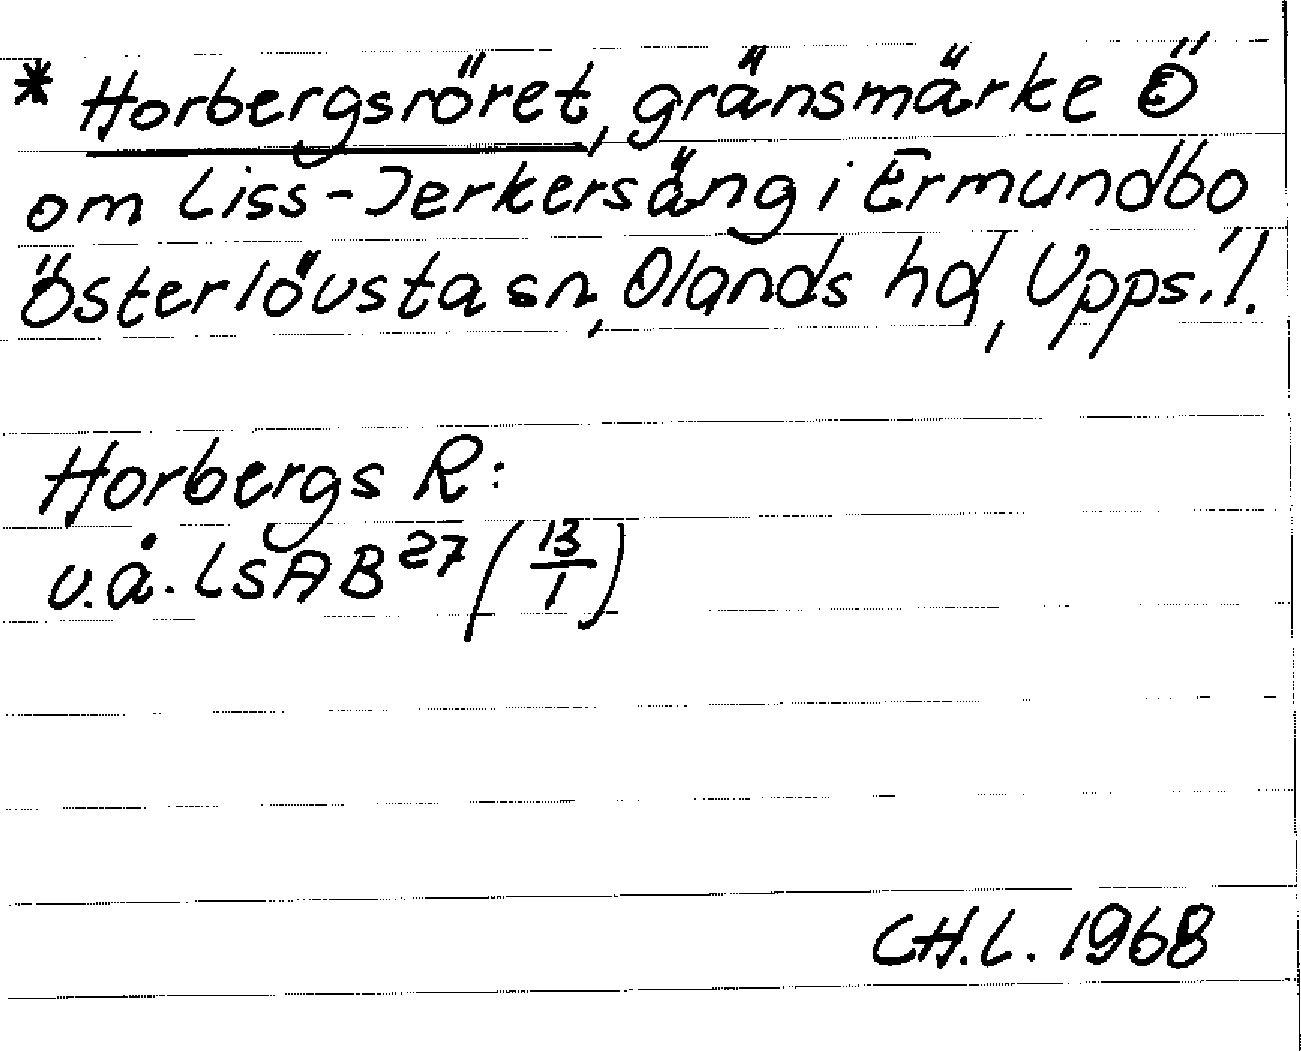 * Horbergsröret, gränsmärke Ö
om Liss-Jerkersäng i Ermundbo
Österlövsta sn, Olands hd, Upps. l.
Horbergs R:
u.å. LSA B27 (13/1)
CH.L. 1968